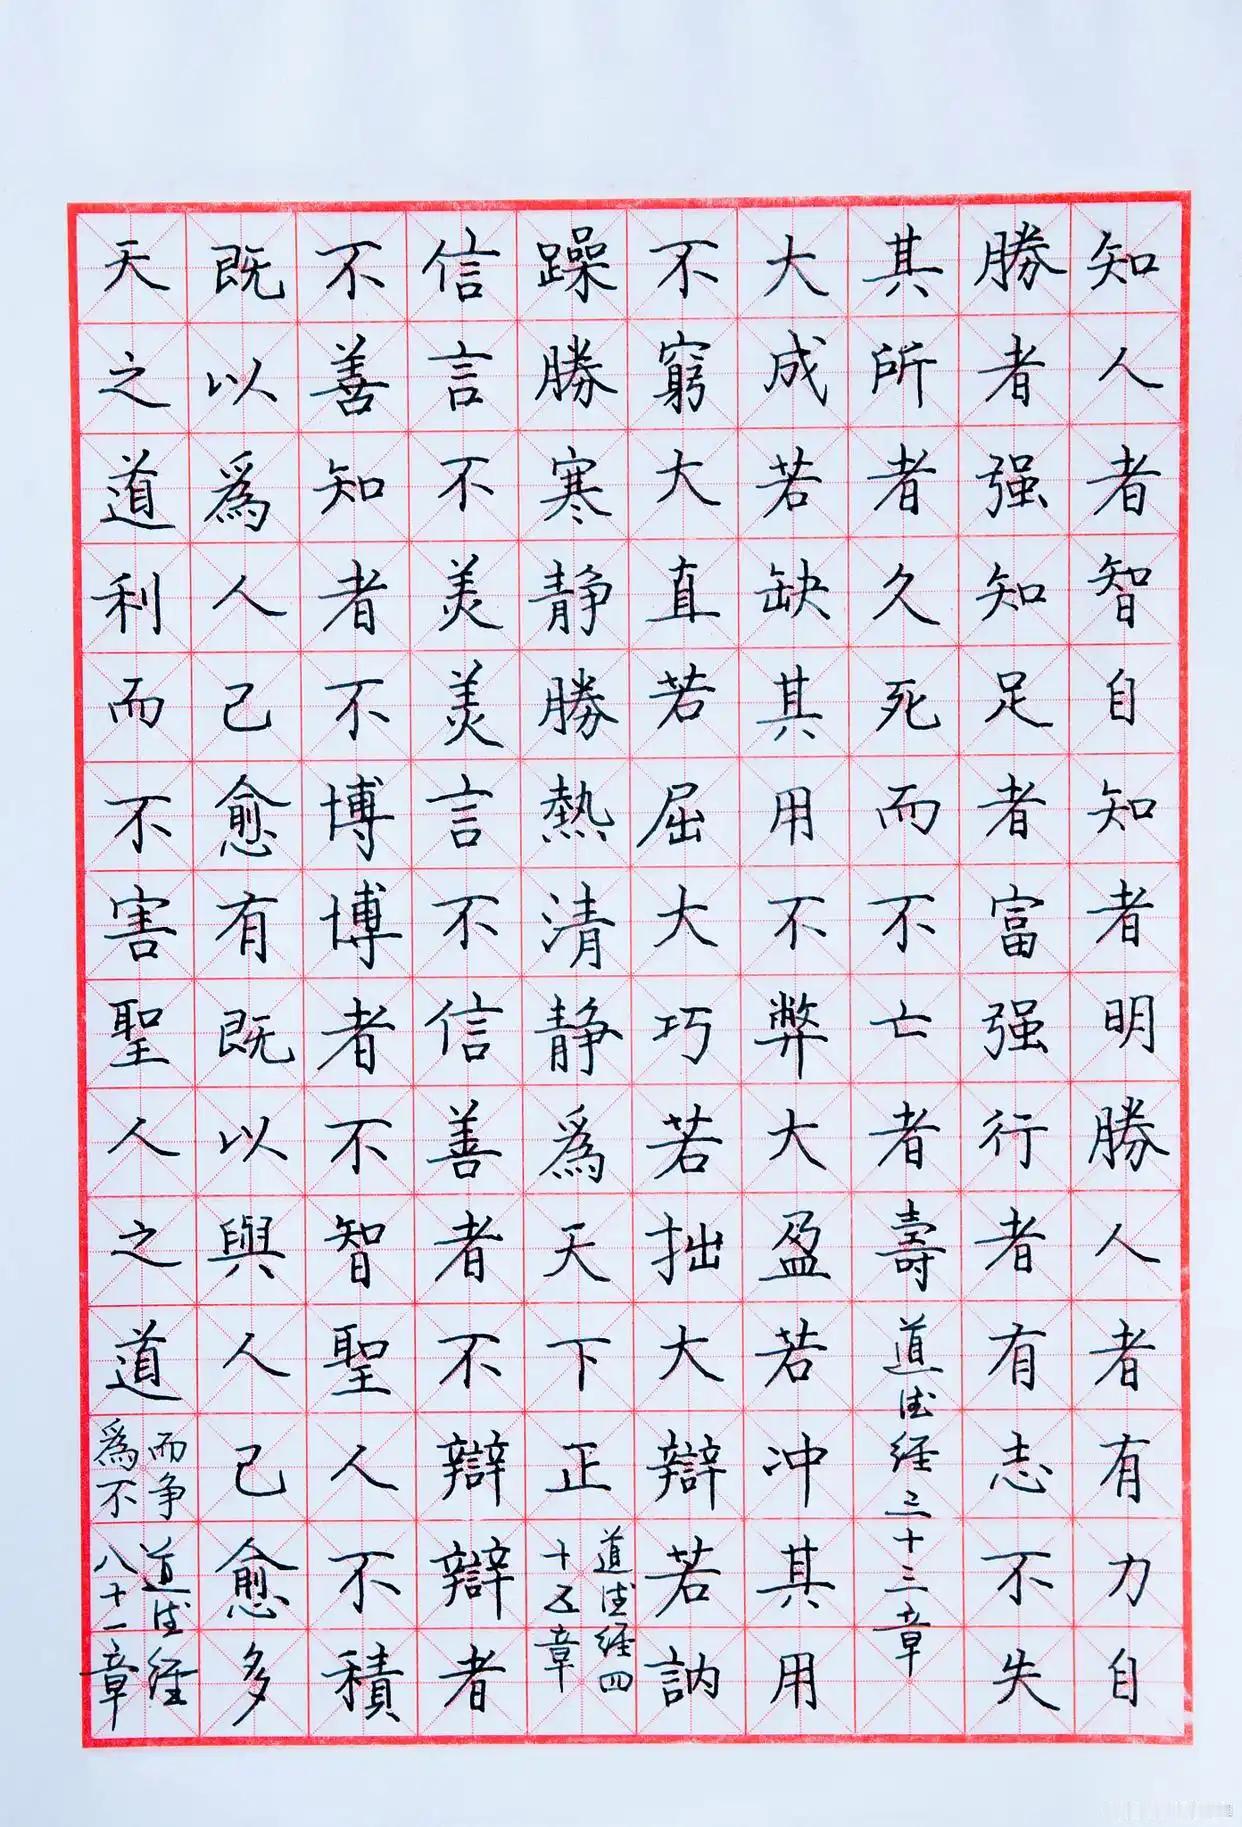 知人者智自知者明勝人者有力自
勝者强知足者富强行者有志不失
其所者久死而不亡者壽道德经三十三章
大成若缺其用不弊大盈若冲其用
不窮大直若屈大巧若拙大辯若訥
躁勝寒静勝熱清静爲天下正道德经四十五章
信言不美美言不信善者不辯辯者
不善知者不博博者不智聖人不積
既以爲人己愈有既以與人己愈多
天之道利而不害聖人之道爲而不争道德经八十一章